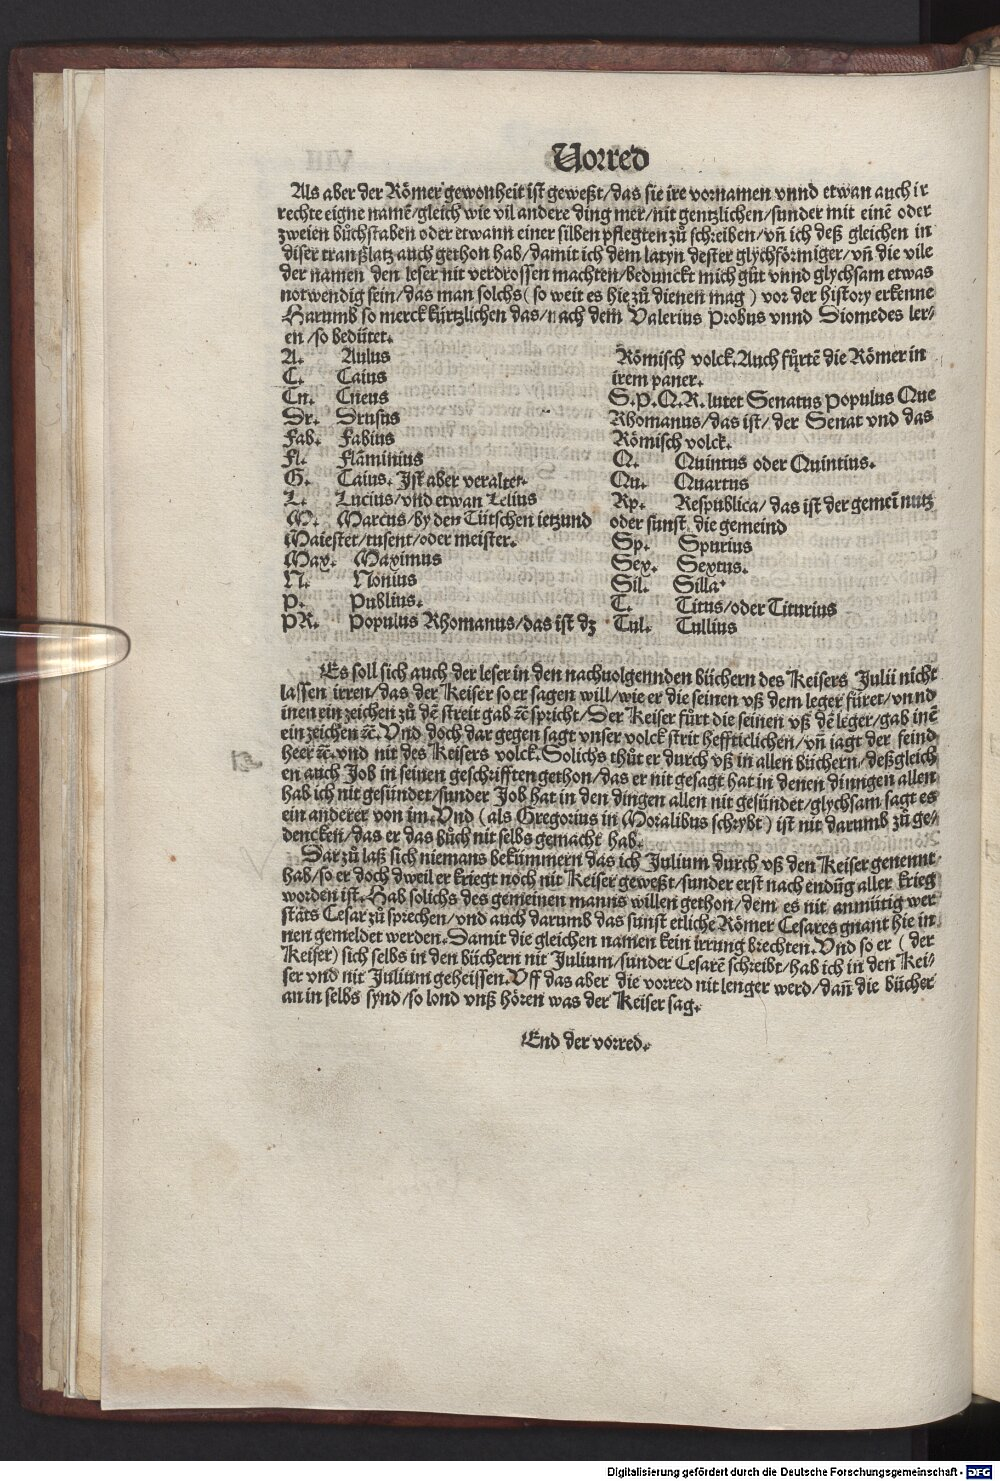 Vorred
Als aber der Römer gewonheit ist geweßt/das sie ire vornamen vnnd etwan auch ir
rechte eigne namē/gleich wie vil andere ding mer/nit gentzlichen/sunder mit einē oder
zweien bůchstaben oder etwann einer silben pflegten zů schreiben/vn̄ ich deß gleichen in
diser tranßlatz auch gethon hab/damit ich dem latyn dester glychförmiger/vn̄ die vile
der namen den leser nit verdrossen machten/bedunckt mich gůt vnnd glychsam etwas
notwendig sein/das man solchs (so weit es hie zů dienen mag) vor der history erkenne
Darumb so merck kürtzlichen das/nach dem Valerius Probus vnnd Diomedes ler⸗
en/so bedütet.
A. Aulus
C. Caius
Cn. Cneus
Dr. Drusus
Fab. Fabius
Fl. Flāminius
G. Gaius. Ist aber veralter.
L. Lucius/vnd etwan Lelius
M. Marcus/by den Tütschen ietzund
Maiestet/tusent/oder meister.
Max. Maximus
N. Nonius
P. Publius.
PR. Populus Rhomanus/das ist dz
Römisch volck. Auch fůrtē die Römer in
irem paner.
S.P.Q.R. lutet Senatus Populus Que
Rhomanus/das ist/der Senat vnd das
Römisch volck.
Q. Quintus oder Quintius.
Qu. Quartus
Rp. Respublica/das ist der gemeī nutz
oder sunst die gemeind
Sp. Spurius
Sex. Sextus.
Sil. Silla.
T. Titus/oder Titurius
Tul. Tullius
Es soll sich auch der leser in den nachuolgennden büchern des Keisers Julii nicht
lassen irren/das der Keiser so er sagen will/wie er die seinen vß dem leger füret/vnnd
inen ein zeichen zů dē streit gab ⁊c̄ spricht/Der Keiser fůrt die seinen vß dē leger/gab inē
ein zeichen ⁊c̄. Vnd doch dar gegen sagt vnser volck strit heffticlichen/vn̄ iagt der feind
heer ⁊c̄. vnd nit des Keisers volck. Solichs thůt er durch vß in allen büchern/deßgleich
en auch Job in seinen geschrifften gethon/das er nit gesagt hat in denen dinngen allen
hab ich nit gesündet/sunder Job hat in den dingen allen nit gesündet/glychsam sagt es
ein anderer von im. Vnd (als Gregorius in Moralibus schrybt) ist nit darumb zů ge⸗
dencken/das er das bůch nit selbs gemacht hab.
Dar zů laß sich niemans bekümmern das ich Julium durch vß den Keiser genennt
hab/so er doch dweil er kriegt noch nit Keiser geweßt/sunder erst nach endūg aller krieg
worden ist. Hab solichs des gemeinen manns willen gethon/dem es nit anmütig wer
stäts Cesar zů sprechen/vnd auch darumb das sunst etliche Römer Cesares gnant hie in
nen gemeldet werden. Damit die gleichen namen kein irrung brechten. Vnd so er (der
Keiser) sich selbs in den büchern nit Julium/sunder Cesarē schreibt/hab ich in den Kei⸗
ser vnd nit Julium geheissen. Vff das aber die vorred nit lenger werd/dan̄ die bücher
an in selbs synd/so lond vnß hören was der Keiser sag.
End der vorred.
Digitalisierung gefördert durch die Deutsche Forschungsgemeinschaft - DFG